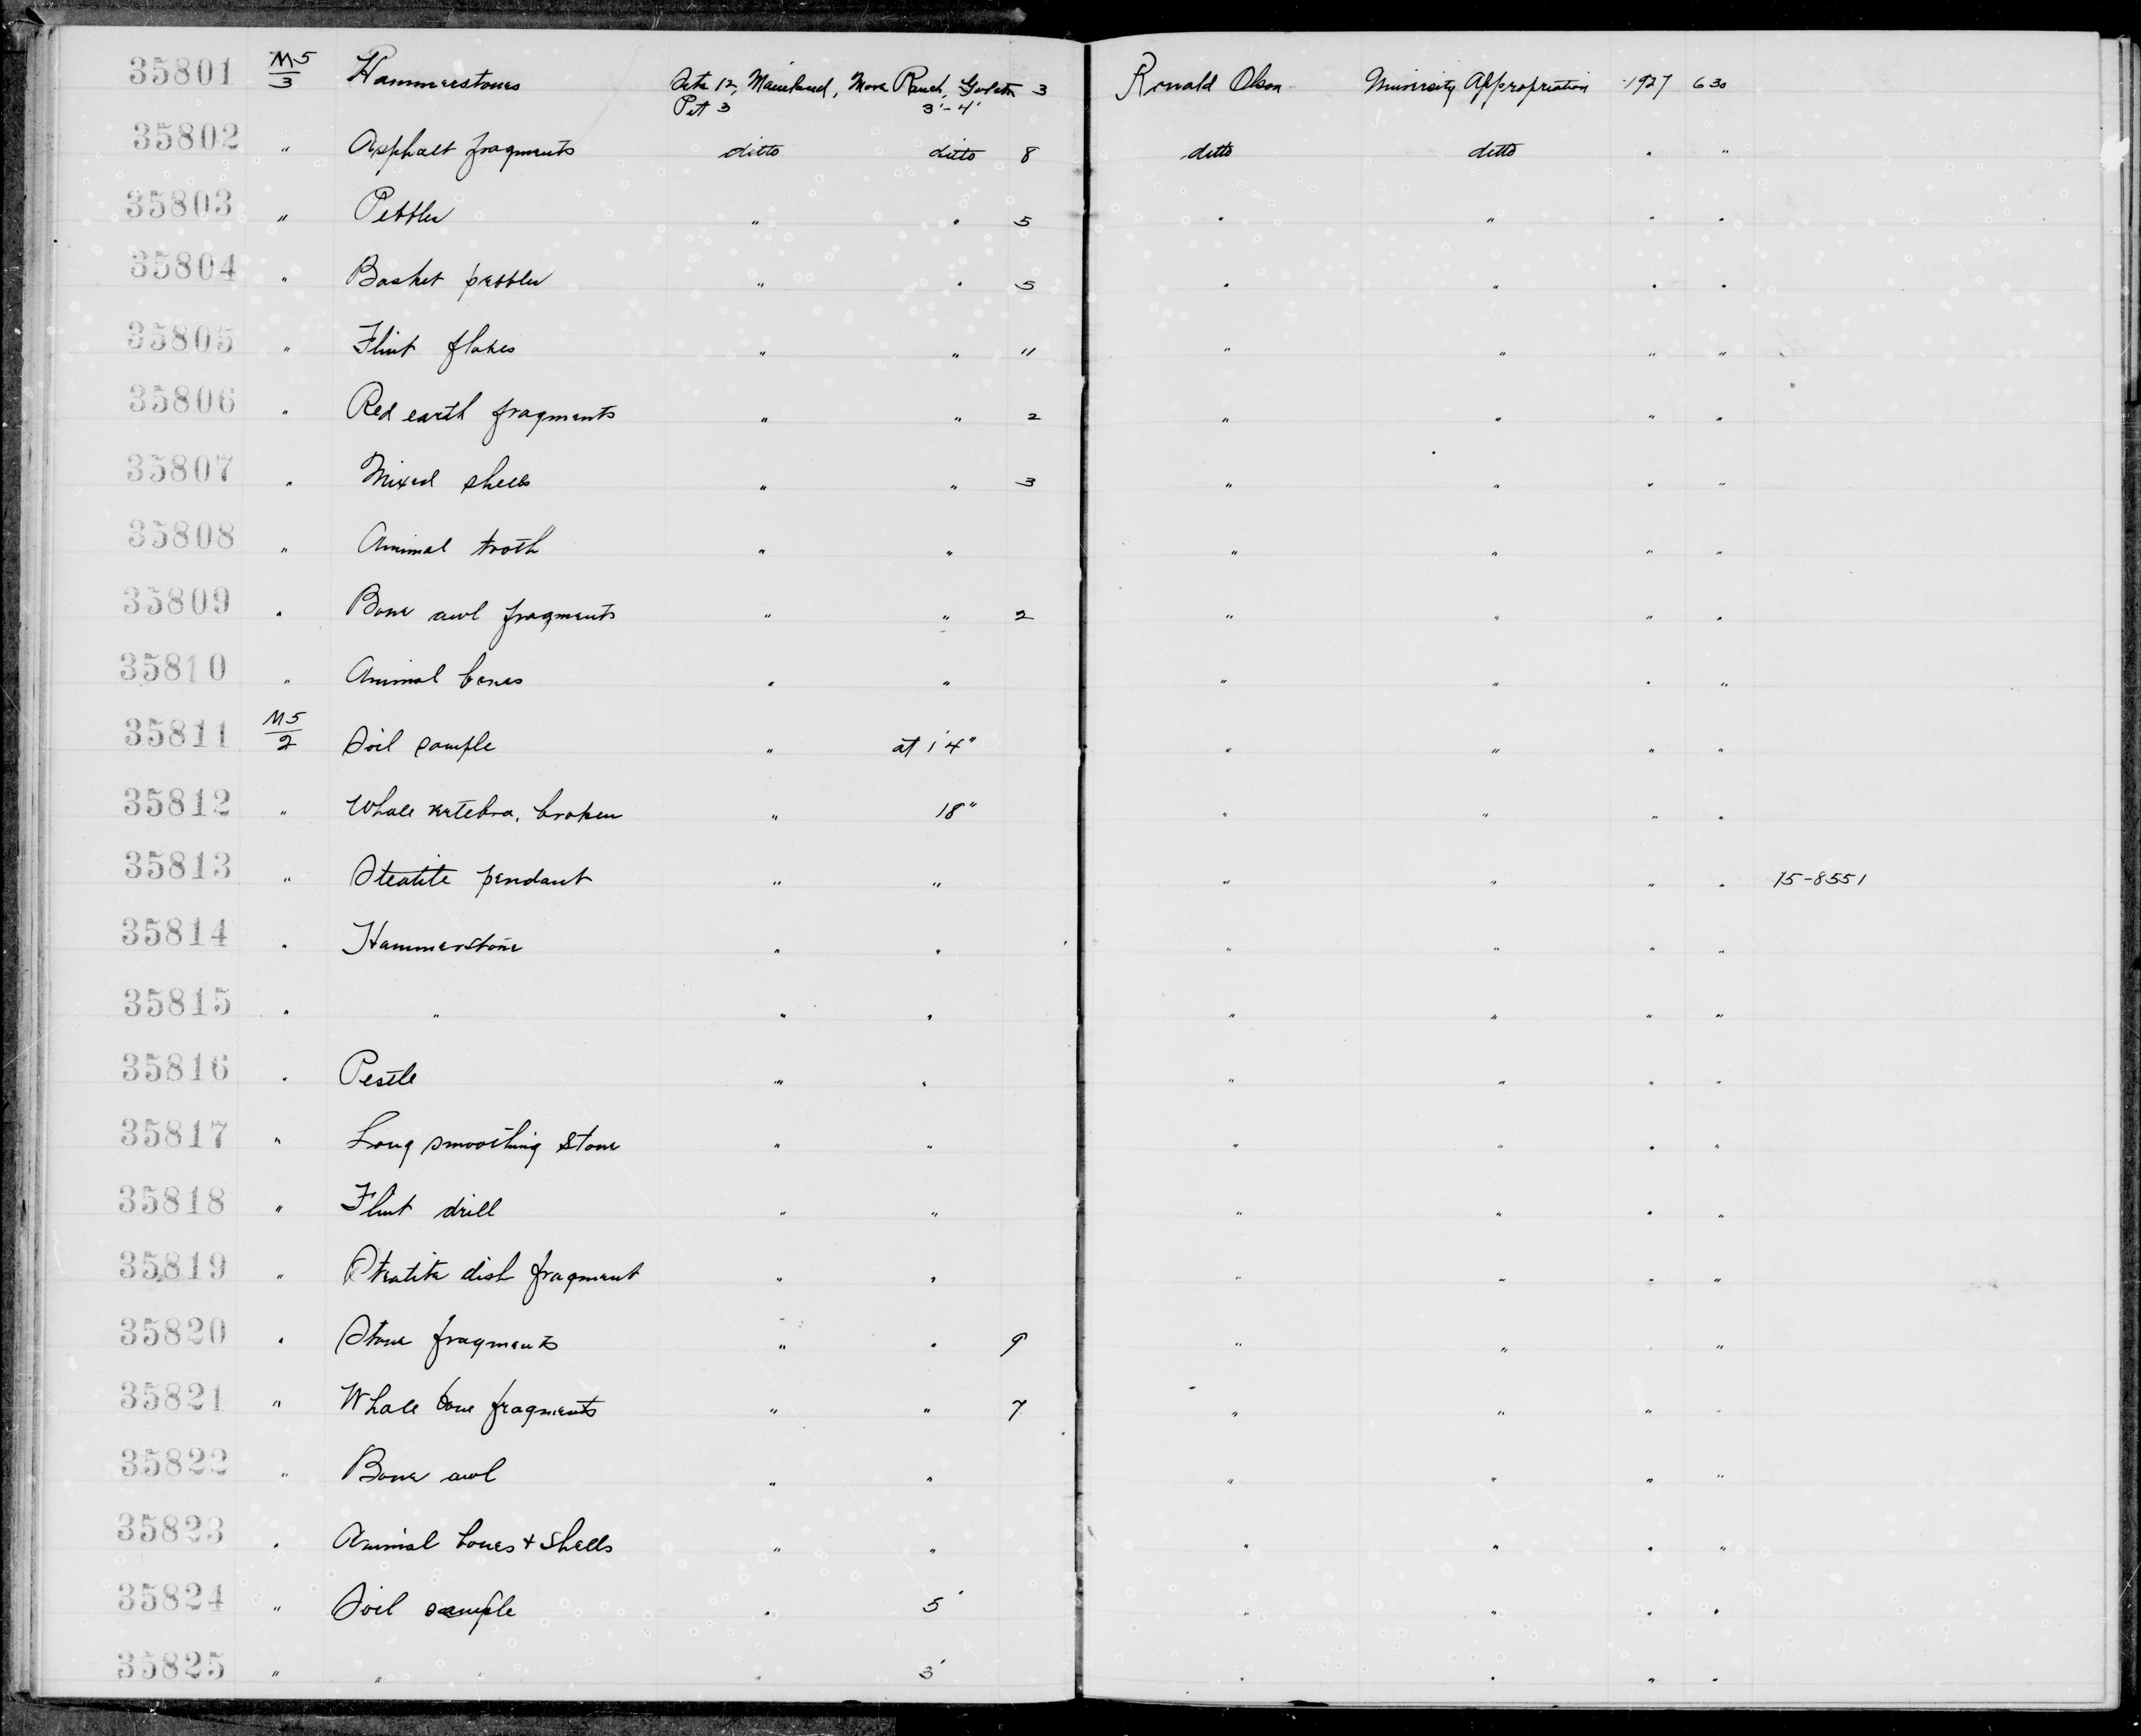 35801 M5/3 Hammerstones Site 12, Mainland, More Ranch, Goleta 3 Ronald Olson University Appropriation 1927 630
Pit 3 3'-4'
35802 " Asphalt fragments ditto ditto 8 ditto ditto " "
35803 " Pebbles " " 5 " " " "
35804 " Basket pebbles " " 5 " " " "
35805 " Flint flakes " " 11 " " " "
35806 " Red earth fragments " " 2 " " " "
35807 " Mixed shells " " 3 " " " "
35808 " Animal tooth " " " " " "
35809 " Bone awl fragments " " 2 " " " "
35810 " Animal bones " " " " " "
35811 M5/2 Soil sample " at 1'4" " " " "
35812 " Whale vertebra, broken " 18" " " " "
35813 " Steatite pendant " " " " " " 15-8551
35814 " Hammerstone " " " " " "
35815 " " " " " " " "
35816 " Pestle " " " " " "
35817 " Long smoothing stone " " " " " "
35818 " Flint drill " " " " " "
35819 " Steatite dish fragment " " " " " "
35820 " Stone fragments " " 9 " " " "
35821 " Whale bone fragments " " 7 " " " "
35822 " Bone awl " " " " " "
35823 " Animal bones + shells " " " " " "
35824 " Soil sample " 5' " " " "
35825 " " " " 3' " " " "